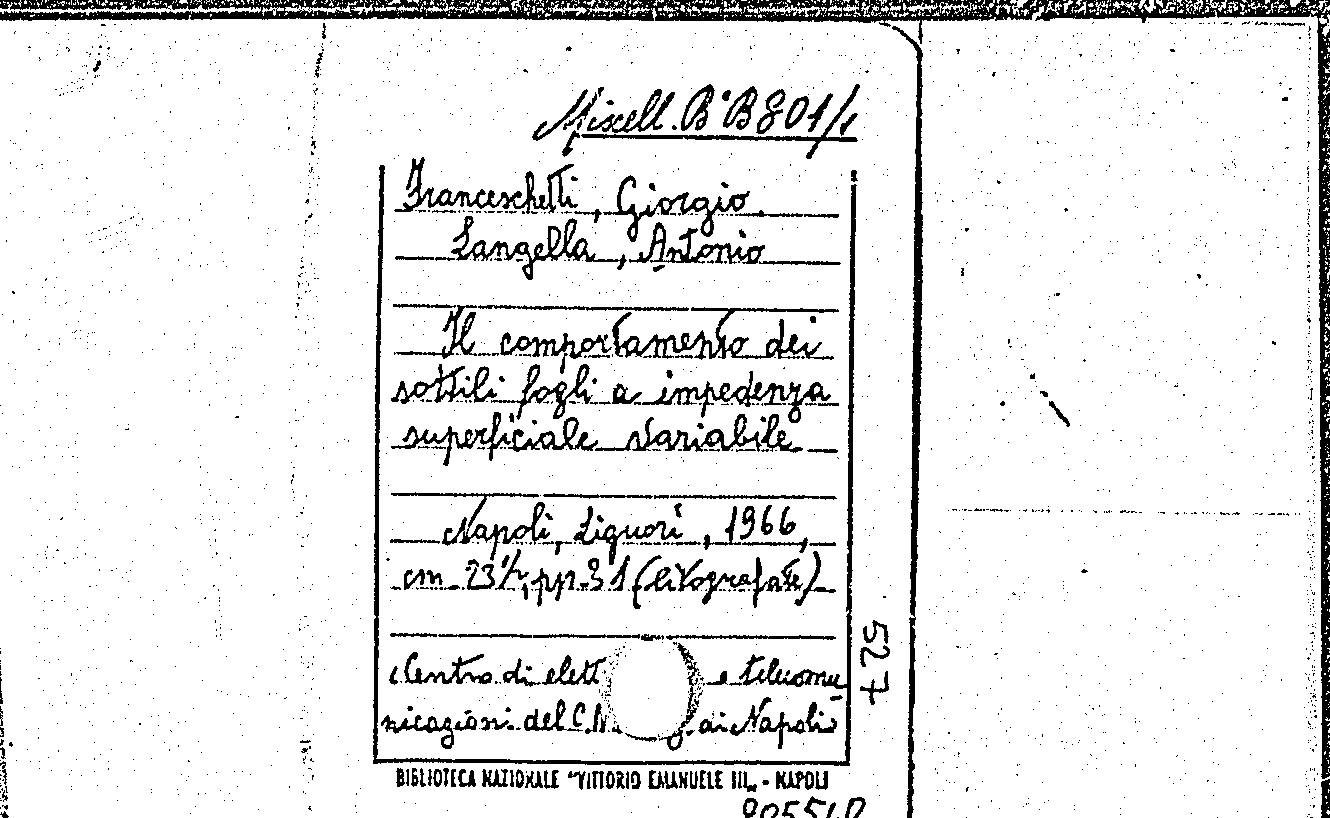 Miscell. B. B 801/1
Franceschetti, Giorgio.
Langella, Antonio
Il comportamento dei
sottili fogli a impedenza
superficiale variabile
Napoli, Liguori, 1966,
cm 23½, pp. 31 (litografate)
Centro di elett e telecomu
nicazioni del C.N. di Napoli
BIBLIOTECA NAZIONALE "VITTORIO EMANUELE III„ - NAPOLI
527